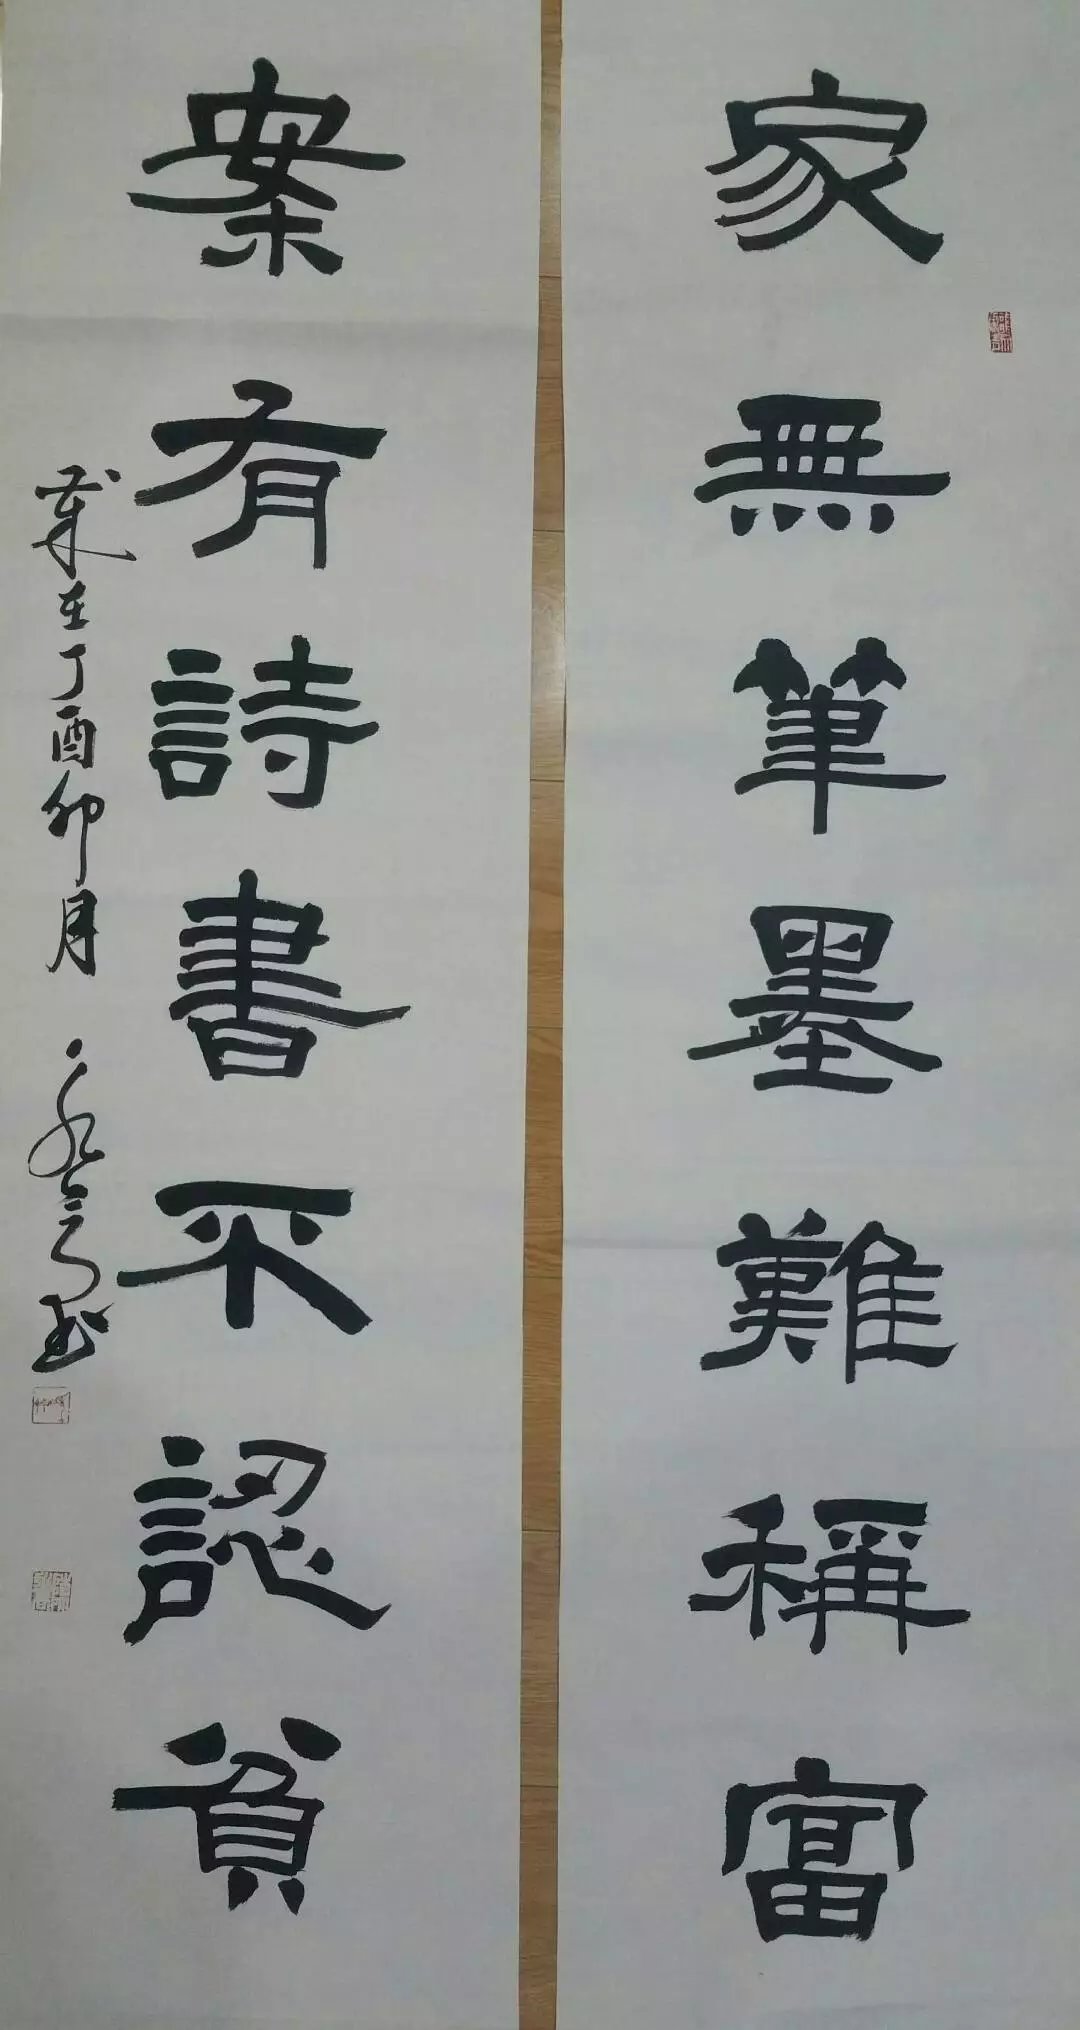 家無筆墨難稱富
案有詩書不認貧
歲在丁酉卯月